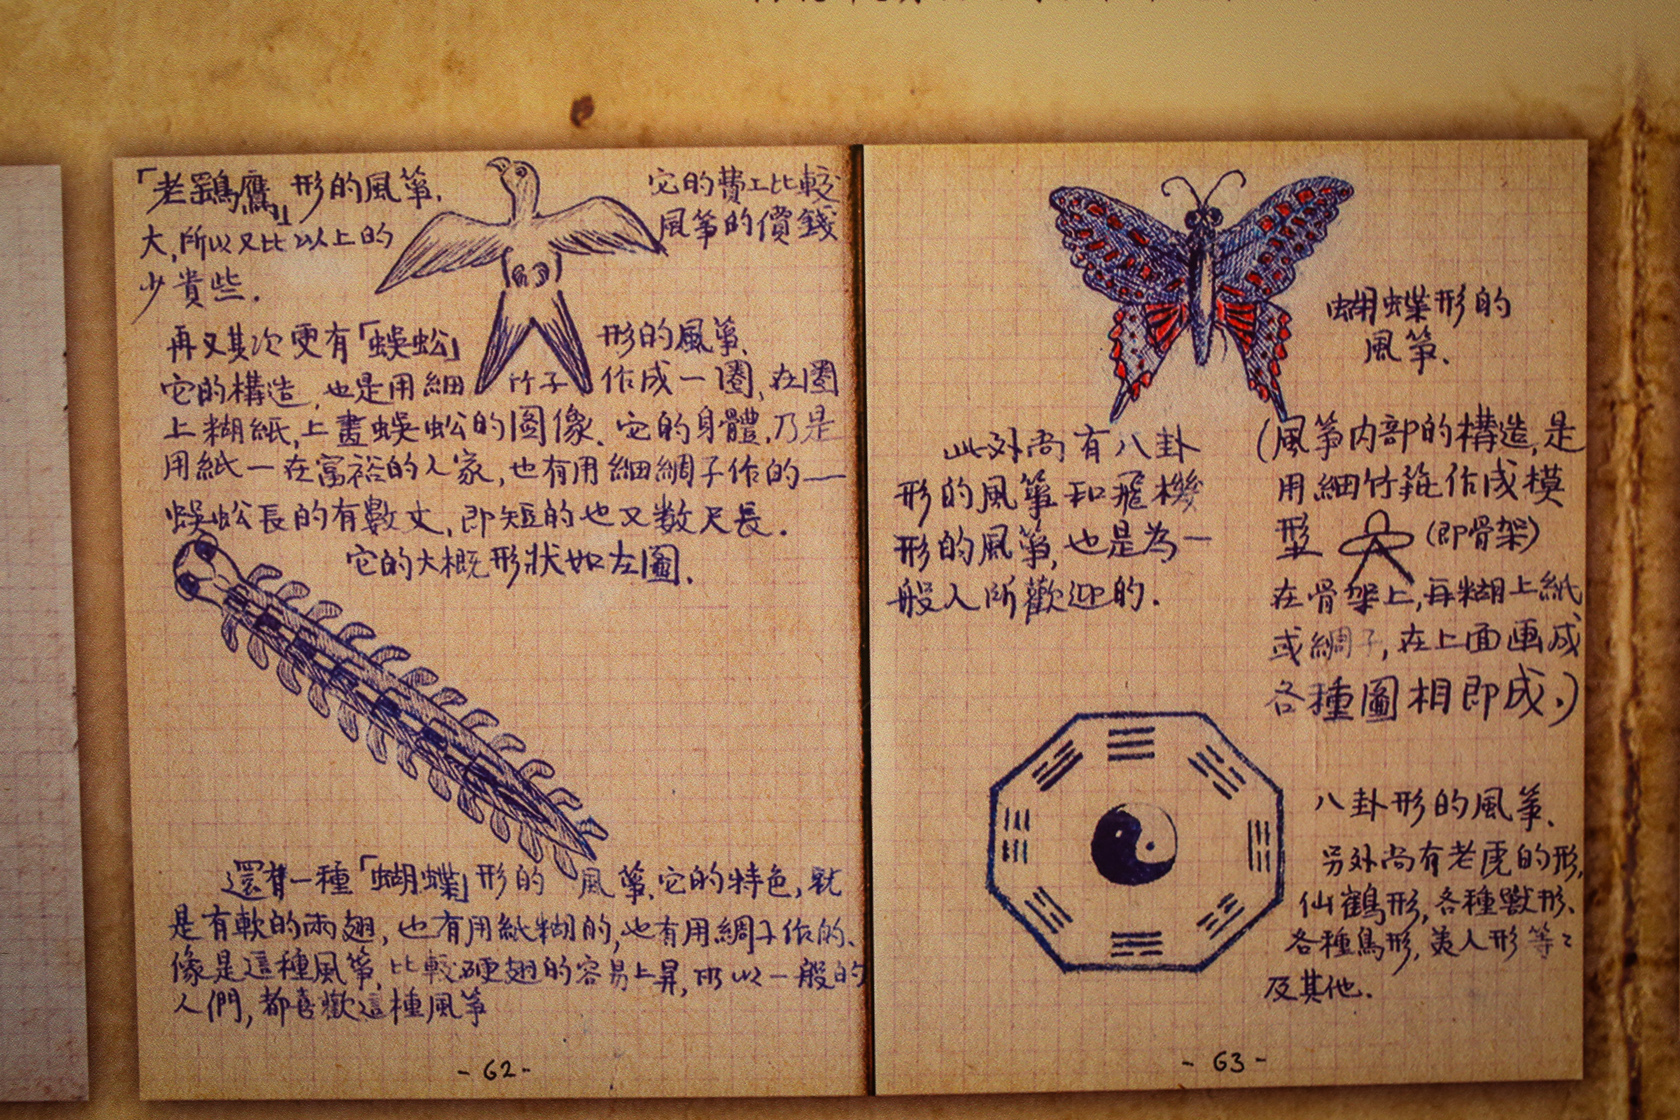 「老鷂鷹」形的風箏, 它的費工比較
大,所以又比以上的 風箏的價錢
少貴些.
再又其次更有「蜈蚣」形的風箏.
它的構造,也是用細竹子作成一圈,在圈
上糊紙,上畫蜈蚣的圖像.它的身體,乃是
用紙一在富裕的人家,也有用細綢子作的——
蜈蚣長的有數丈,即短的也又数尺長.
它的大概形狀如左圖.
還有一種「蝴蝶」形的風箏.它的特色,就
是有軟的兩翅,也有用紙糊的,也有用綢子作的、
像是這種風箏,比較硬翅的容易上昇,所以一般的
人們,都喜歡這種風箏
-62-
蝴蝶形的
風箏.
(風箏内部的構造,是
用細竹箍作成模
型 (即骨架)
在骨架上,再糊上紙
或綢子,在上面画成
各種圖相即成.)
此外尚有八卦
形的風箏和飛機
形的風箏,也是為一
般人所歡迎的.
八卦形的風箏.
另外尚有老虎的形,
仙鶴形,各種獸形、
各種鳥形,美人形等々
及其他.
-63-